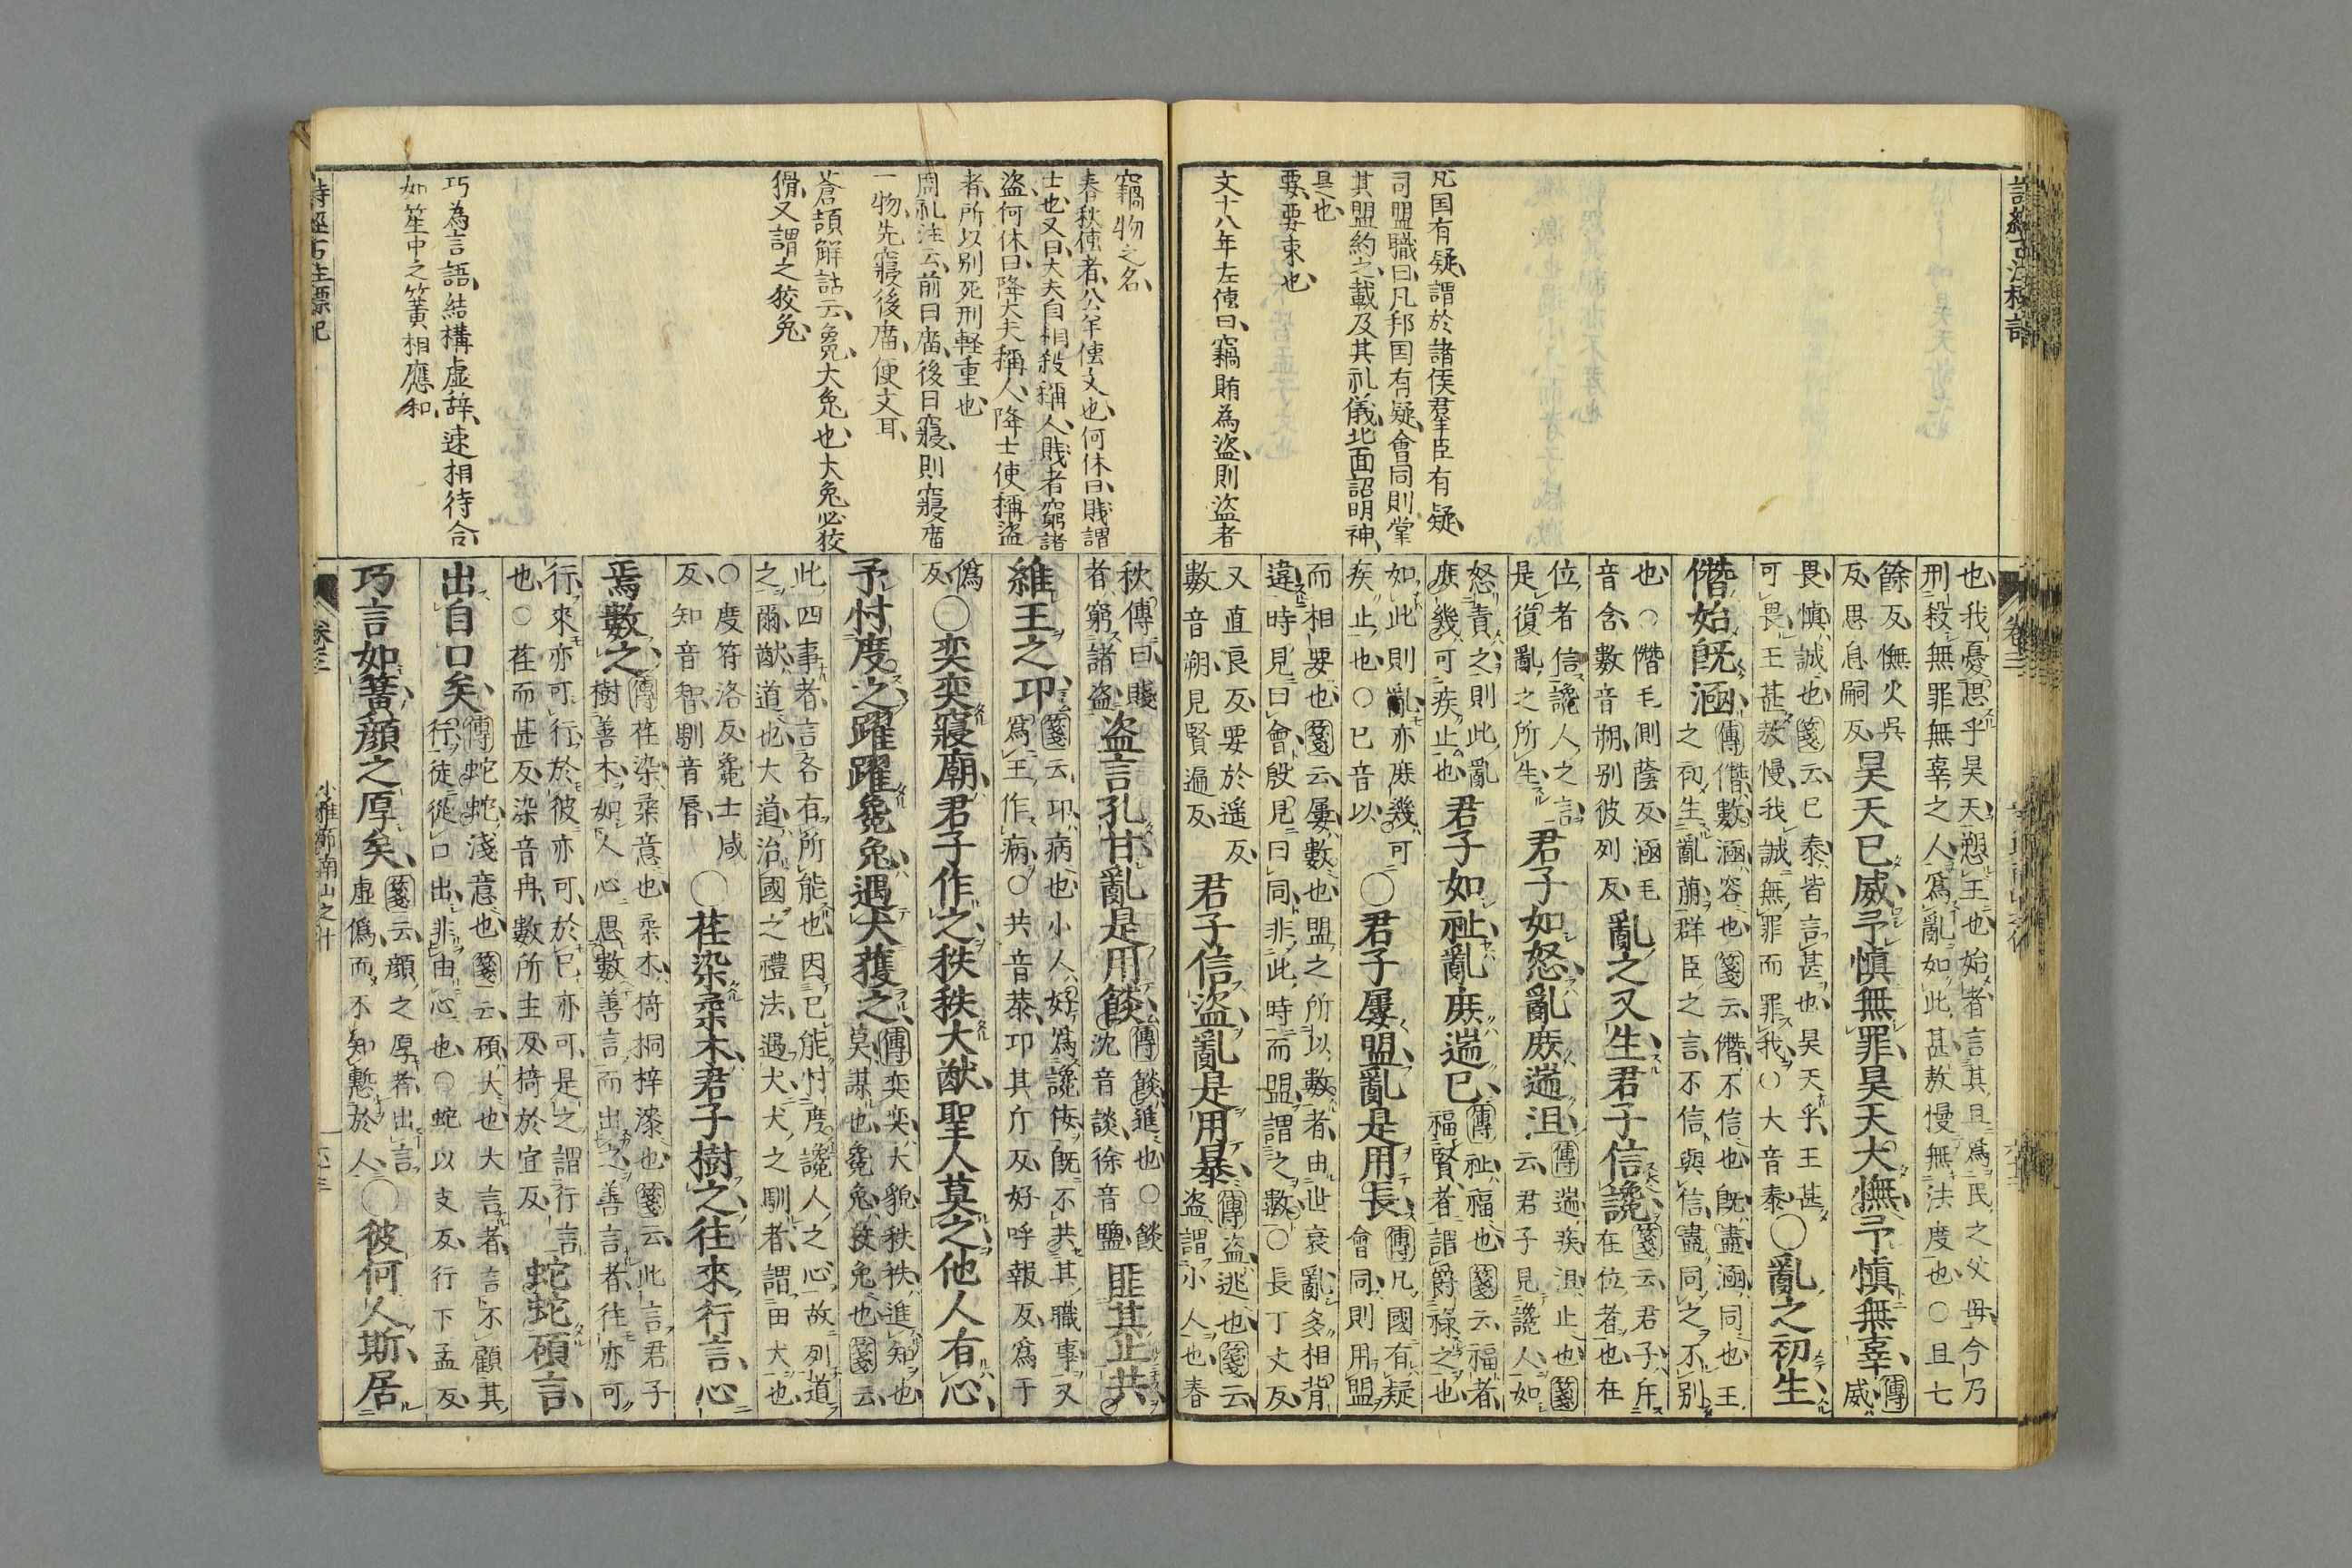 詩經古注標記
凡国有疑、謂於諸侯群臣有疑、
司盟職曰、凡邦国有疑、會同則掌
其盟約之載及其礼儀、北面詔明神、
是也
要、要束也、
文十八年左傳曰、竊賄為盜、則盜者
也、我憂思乎昊天、愬王也、始者言其且爲民之父母、今乃
刑殺無罪無辜之人、爲亂如此、甚敖慢無法度也、○且七
餘反、憮火吳
反、思息嗣反、
昊天已威、予愼無罪、昊天大憮、予愼無辜、
傳
威、
畏、愼、誠也、箋云、已泰、皆言甚也、昊天乎、王甚
可畏、王甚敖慢、我誠無罪而罪我、○大音泰、
○亂之初生、
僭始旣涵、
傳僭、數、涵、容也、箋云、僭、不信也、旣、盡、涵、同也、王
之初生亂萠、群臣之言不信與信、盡同之不别
也、○僭毛側蔭反、涵毛
音含、數音朔、别彼列反、
亂之又生、君子信讒、
箋云、君子、斥
在位者也、在
位者信讒人之言、
是復亂之所生、
君子如怒、亂庶遄沮、
傳遄、疾、沮、止也、箋
云、君子見讒人、如
怒責之、則此亂
庶幾可疾止也、
君子如祉、亂庶遄已、
傳祉、福也、箋云、福者、
福賢者、謂爵祿之也、
如此則亂亦庶幾可
疾止也、○已音以、
○君子屢盟、亂是用長、
傳凡國有疑、
會同則用盟
而相要也、箋云、屢、數也、盟之所以數者、由世衰亂多相背
違、時見曰會、殷見曰同、非此時而盟、謂之數、○長丁丈反、
又直良反、要於遙反、
數音朔、見賢遍反、
君子信盜、亂是用暴、
傳盜、逃也、箋云、
盜謂小人也、春
竊物之名、
春秋傳者、公羊傳文也、何休曰、賎謂
士也、又曰、大夫自相殺稱人、賎者窮諸
盜、何休曰、降大夫稱人、降士使稱盜
者、所以别死刑軽重也、
周礼注云、前曰庿、後曰寢、則寢庿
一物、先寢後庿、便文耳、
蒼頡解詁云、毚大兔也、大兔必狡
猾、又謂之狡兔、
巧為言語、結構虚辞、速相待合
如笙中之簧相應和、
秋傳曰、賤
者窮諸盜、
盜言孔甘、亂是用餤、
傳餤、進也、○餤
沈音談、徐音鹽、
匪其止共、
維王之卭、
箋云、卭、病也、小人好爲讒佞、旣不共其職事、又
爲王作病、○共音恭、卭其斤反、好呼報反、爲于
僞
反、
○奕奕寢廟、君子作之、秩秩大猷、聖人莫之、他人有心、
予忖度之、躍躍毚兔、遇犬獲之、
傳奕奕、大貌、秩秩、進知也、
莫、謀也、毚兔、狡兔也、箋云、
此四事者、言各有所能也、因已能忖度讒人之心、故列道
之爾、猷、道也、大道、治國之禮法、遇犬、犬之馴者、謂田犬也、
○度符洛反、毚士咸
反、知音智、馴音脣、
○荏染柔木、君子樹之、往來行言、心
焉數之、
傳荏染、柔意也、柔木、椅桐梓漆也、箋云、此言君子
樹善木、如人心思數善言而出之、善言者、往亦可
行、來亦可行、於彼亦可、於已亦可、是之謂行言
也、○荏而甚反、染音冉、數所主反、椅於宜反、
蛇蛇碩言、
出自口矣、
傳蛇蛇、淺意也、箋云、碩、大也、大言者、言不顧其
行、徒從口出、非由心也、○蛇以支反、行下孟反、
巧言如簧、顔之厚矣、
箋云、顔之厚者、出言
虛僞、而不知慙於人、
○彼何人斯、居
詩經古注標記
卷三
小雅節南山之什